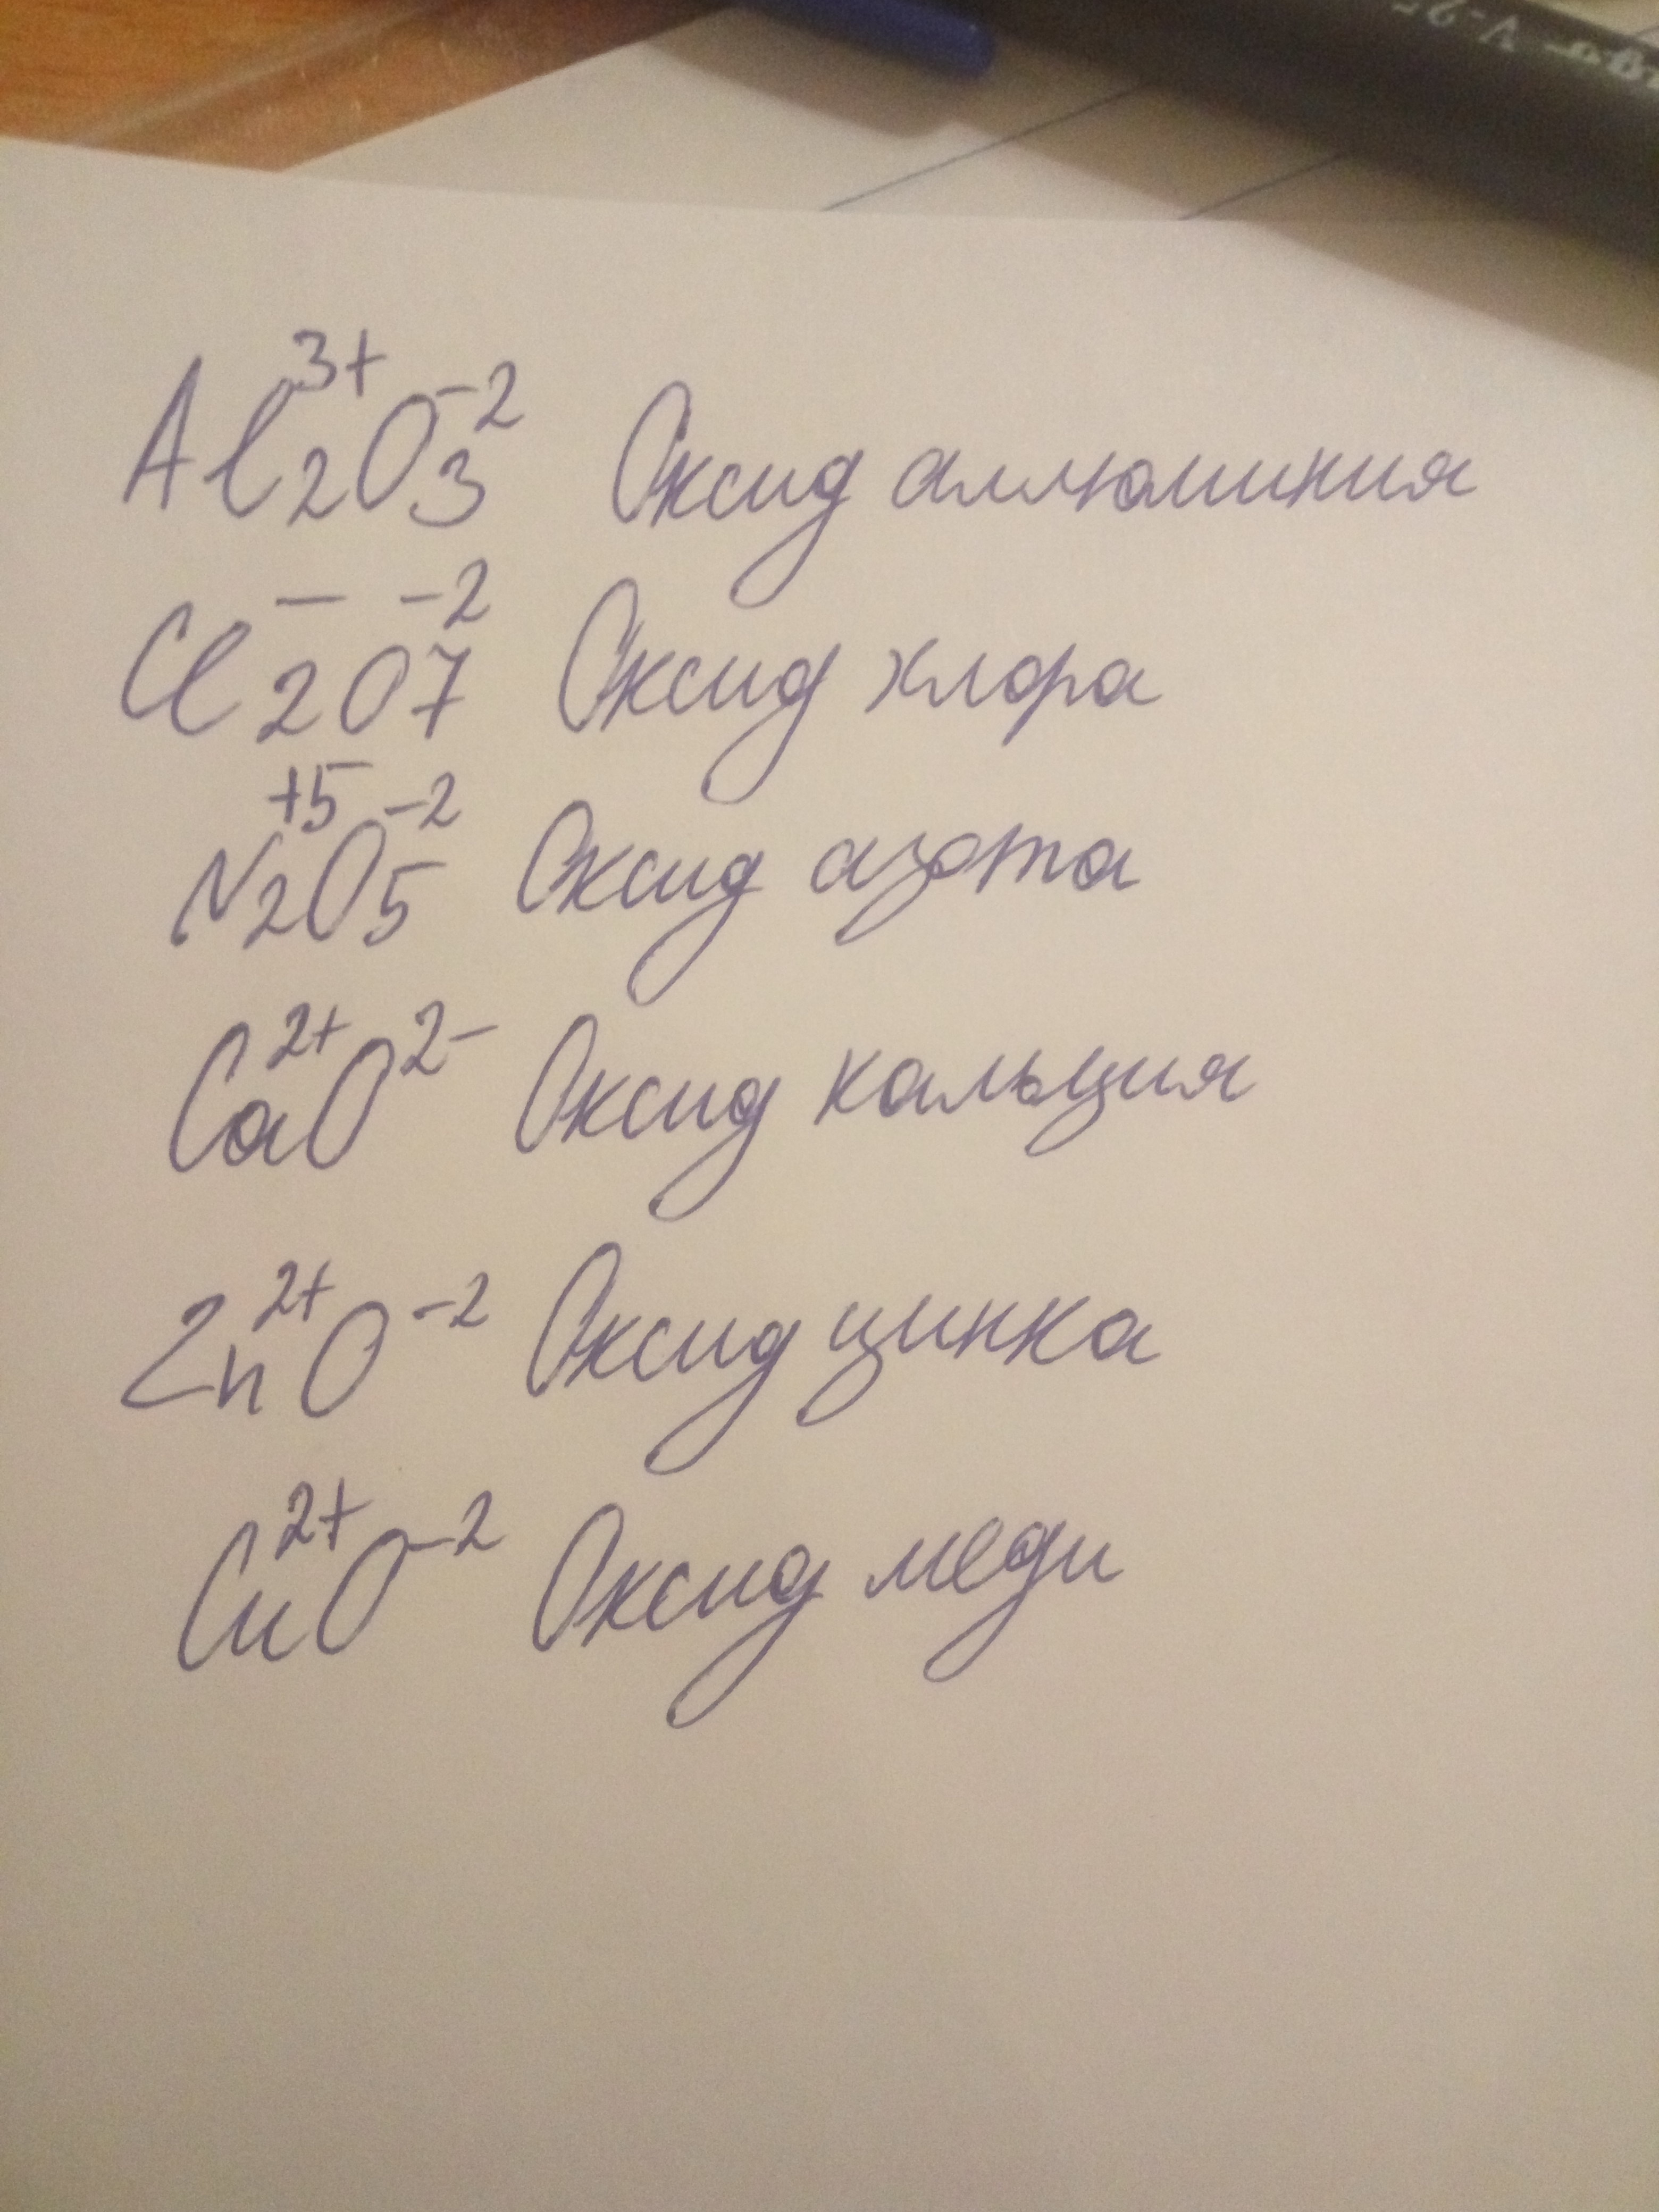 Al₂³⁺O₃⁻² Оксид аллюминия
Cl₂⁻O₇⁻² Оксид хлора
N₂⁺⁵O₅⁻² Оксид азота
Ca²⁺O²⁻ Оксид кальция
Zn²⁺O⁻² Оксид цинка
Cu²⁺O⁻² Оксид меди